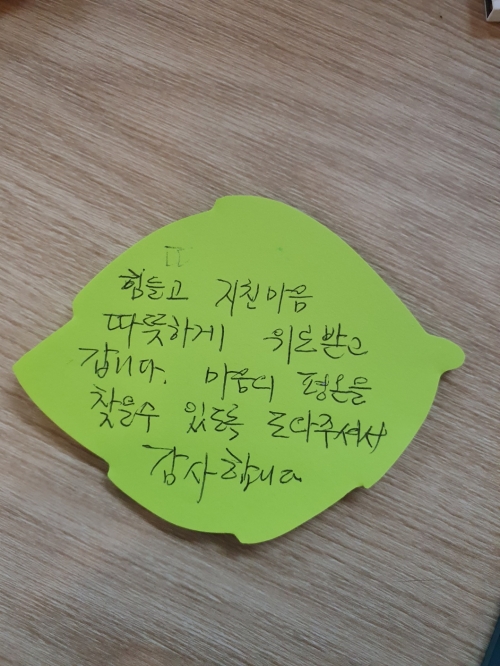 힘들고 지친마음
따뜻하게 위로받고
갑니다. 마음의 평온을
찾을수 있도록 도와주셔서
감사합니다